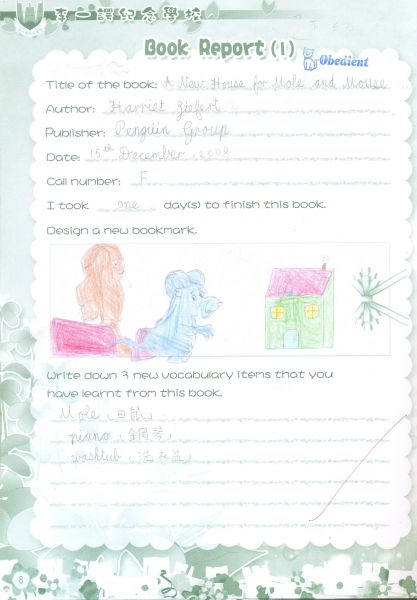 李一諤紀念學校
Book Report (1)
Obedient
Title of the book: A New House for Mole and Mouse
Author: Harriet Ziefert
Publisher: Penguin Group
Date: 15th December, 2008
Call number: F
I took one day(s) to finish this book.
Design a new bookmark.
Write down 3 new vocabulary items that you
have learnt from this book.
Mole (田鼠)
piano (鋼琴)
washtub (洗衣盆)
8